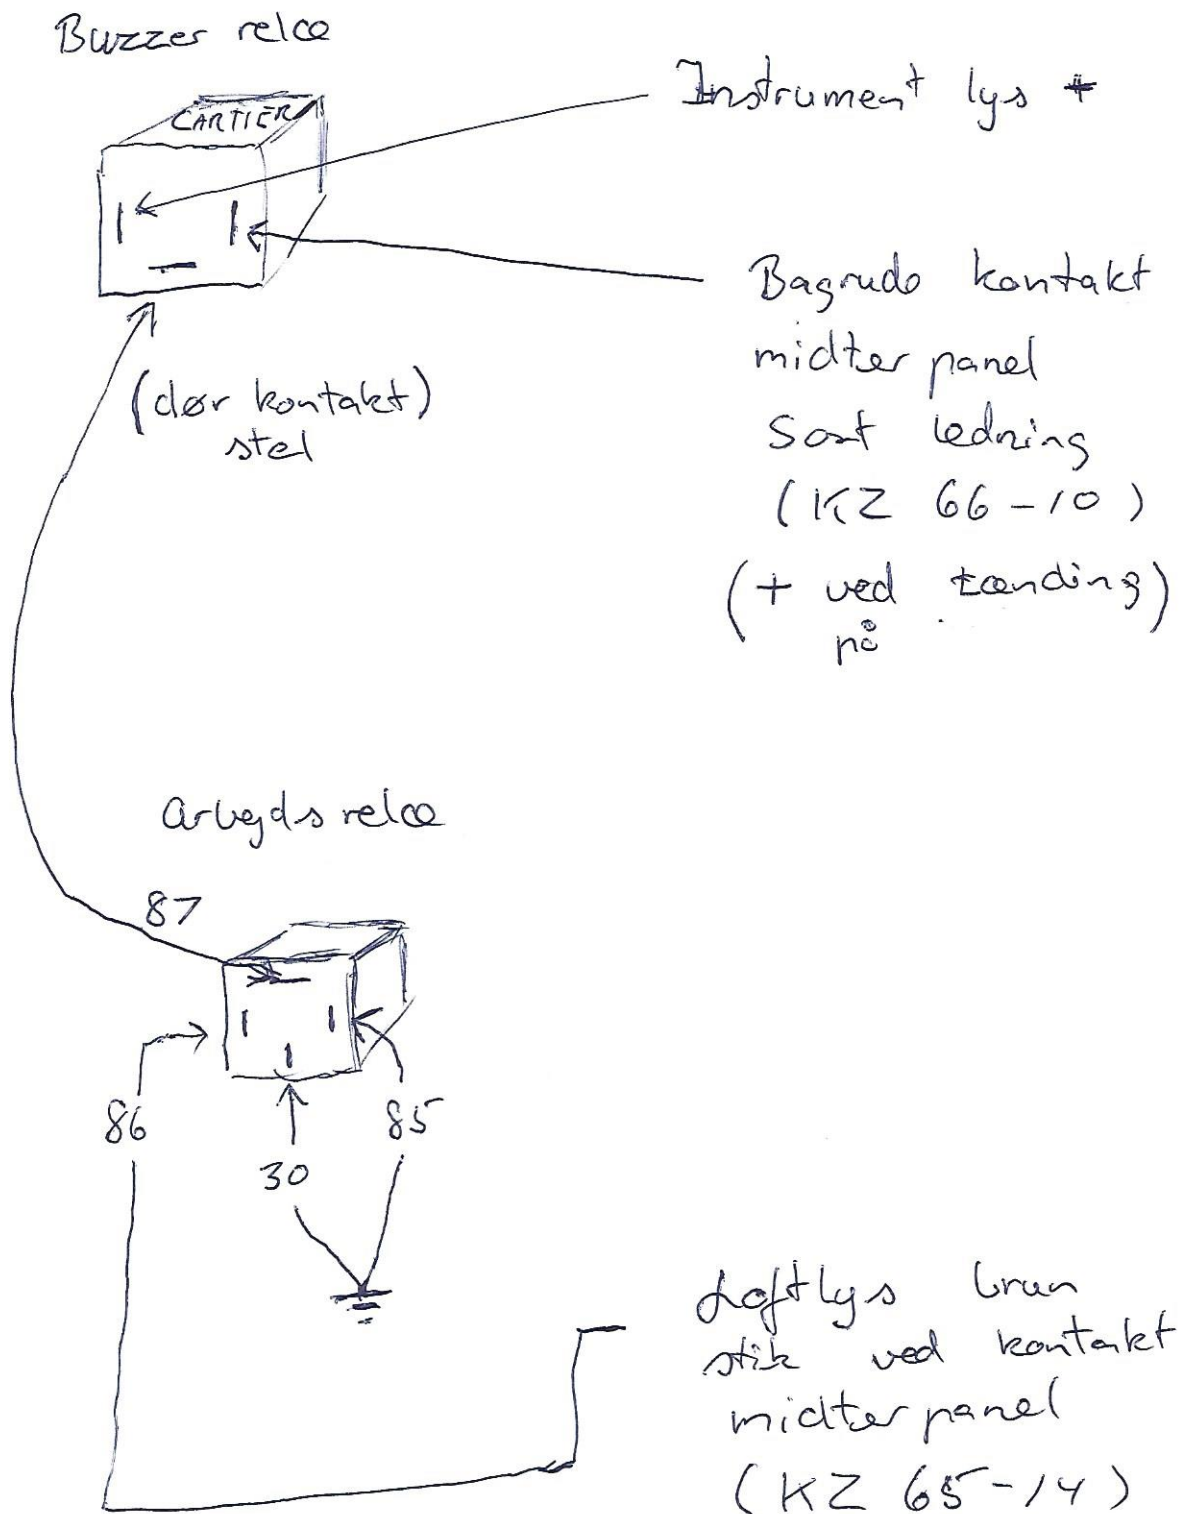 Buzzer relæ
CARTIER
Instrument lys +
Bagrude kontakt
midter panel
Sort ledning
(KZ 66-10)
(+ ved tænding)
på
(dør kontakt)
stel
arbejds relæ
87
86
85
30
Loftlys brun
stik ved kontakt
midter panel
(KZ 65-14)